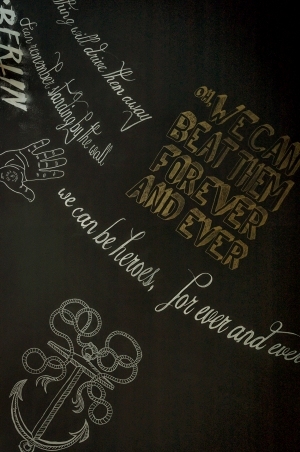 BERLIN
thing will drive them away
I can remember standing by the wall
oh, WE CAN
BEAT THEM
FOREVER
AND EVER
we can be heroes, for ever and ever